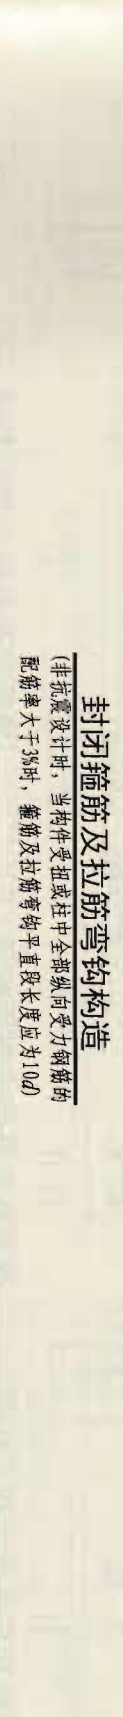 封闭箍筋及拉筋弯钩构造
(非抗震设计时，当构件受扭或柱中全部纵向受力钢筋的
配筋率大于3%时，箍筋及拉筋弯钩平直段长度应为10d)